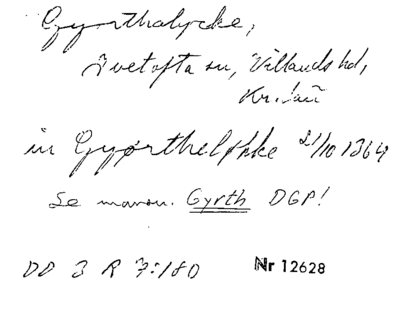 Gyrthalycke,
Ivetofta sn, Villands hd,
Kr. län
in Gyørthelykke 21/10 1364
Se mansn. Gyrth DGP!
DD 3 R 7:180 Nr 12628